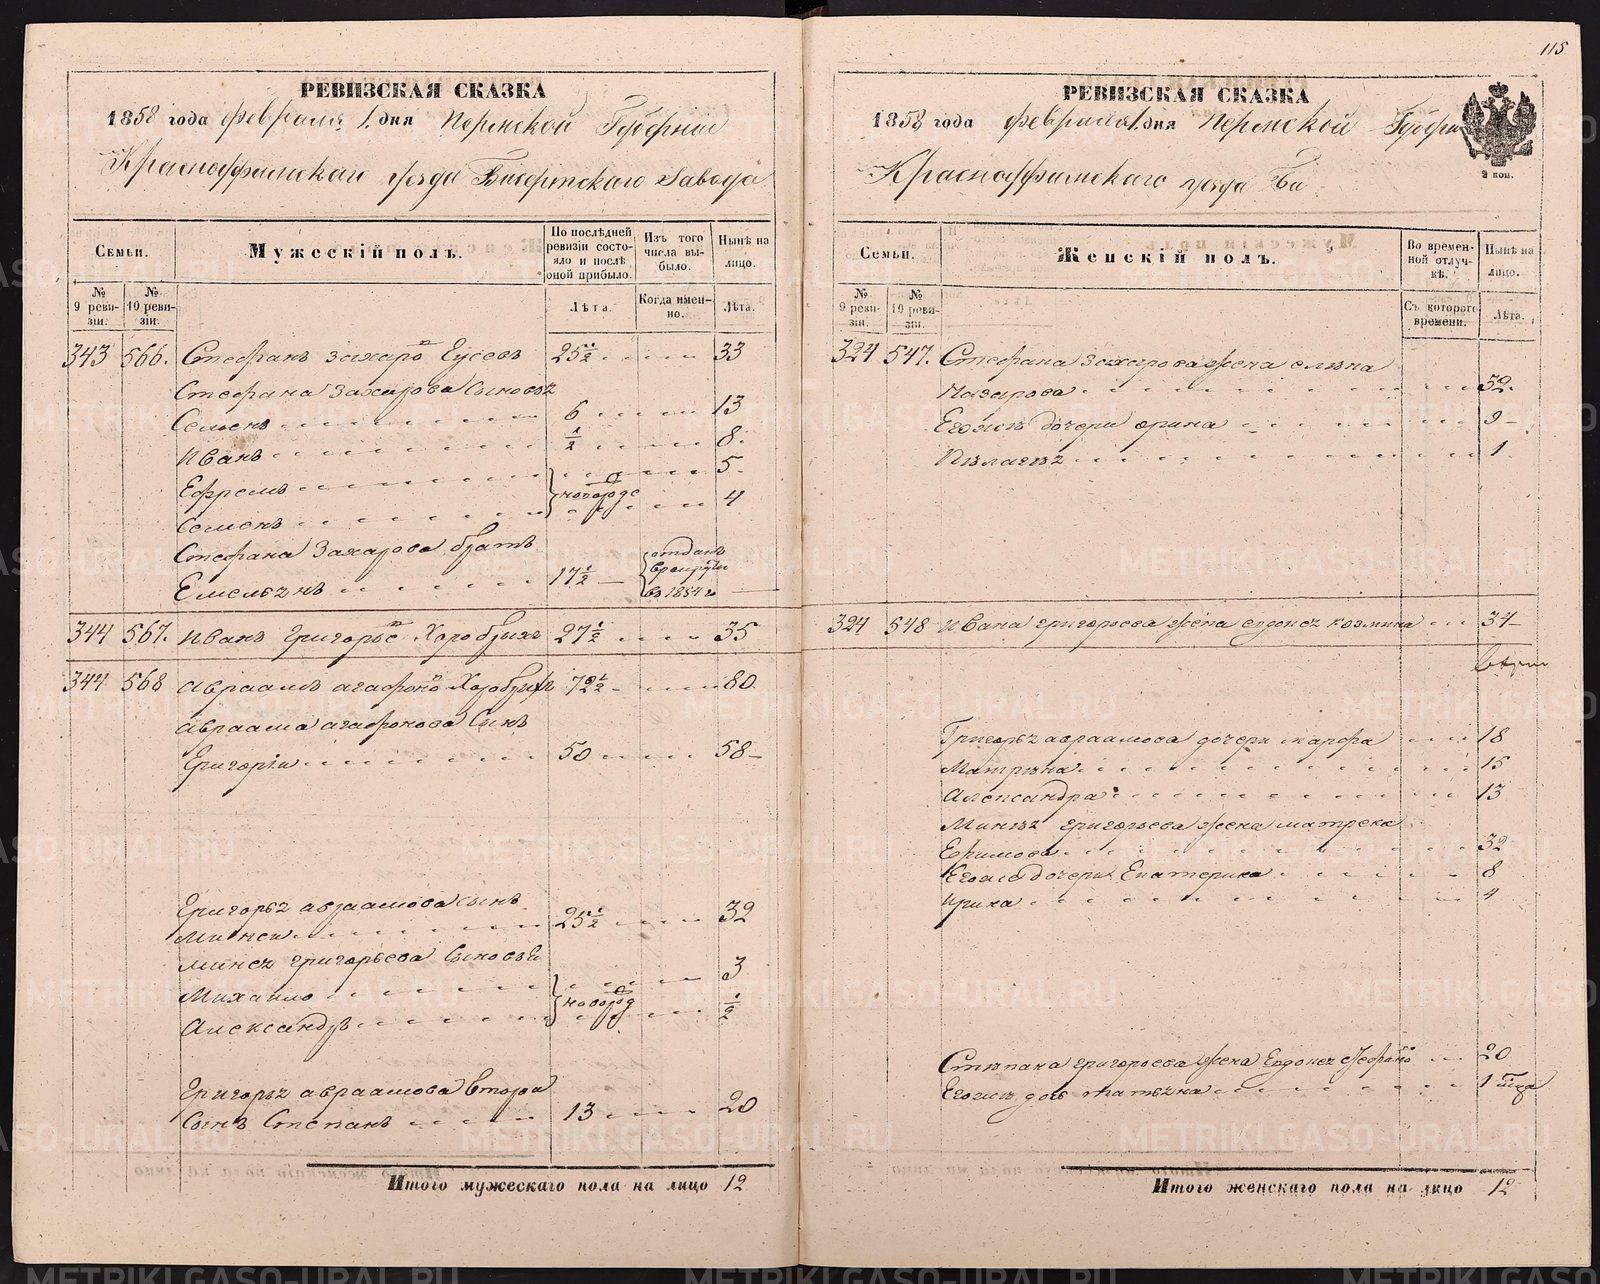 115
РЕВИЗСКАЯ СКАЗКА
1858 года февраля 1. дня Пермской Губернии
Красноуфимскаго уезда Бисертскаго Завода
Семьи.
Мужескій полъ.
По послѣдней ревизіи состояло и послѣ оной прибыло.
Изъ того числа выбыло.
Нынѣ на лицо.
№ 9 ревизіи.
№ 10 ревизіи.
Лѣта.
Когда именно.
Лѣта.
343 566. Стефанъ Захаро Гусевъ 25½ 33
Стефана Захарова Сыновья
Семенъ 6 13
Иванъ ½ 8.
Ефремъ 5
новорож
Семенъ 4
Стефана Захарова братъ
Емельянъ 17½ отданъ в рекруты въ 1854 г
344 567. Иванъ Григорье Хоробрыхъ 27½ 35
344 568 Авраамъ Агафоно Хоробрыхъ 72½ 80
Авраама Агафонова Сынъ
Григорій 50 58
Григорья Авраамова сынъ
Минеи 25½ 32
Минея Григорьева Сыновья
Михаило 3
новорож
Александръ ½
Григорья Авраамова Второй
Сынъ Степанъ 13 20
Итого мужескаго пола на лицо 12
РЕВИЗСКАЯ СКАЗКА
1858 года февраля 1. дня Пермской Губерни
Красноуфимскаго уезда Би
2 коп.
Семьи.
Женскій полъ.
Во временной отлучкѣ.
Нынѣ на лицо.
№ 9 ревизіи.
№ 10 ревизіи.
Съ котораго времени.
Лѣта.
324 547. Стефана Захарова жена Елена
Назарова 32.
Его дочери Орина 9
Пелагея 1
324 548 Ивана Григорьева жена Евдокея Козмина 34
Григорья Авраамова дочери Марфа 18
Матрена 15
Александра 13
Минея Григорьева жена Матрена
Ефимова 32
Его дочери Екатерина 8
Ирина 4
Степана Григорьева жена Евдокея 20
Его дочь 1
Итого женскаго пола на лицо 12
METRIKI.GASO-URAL.RU